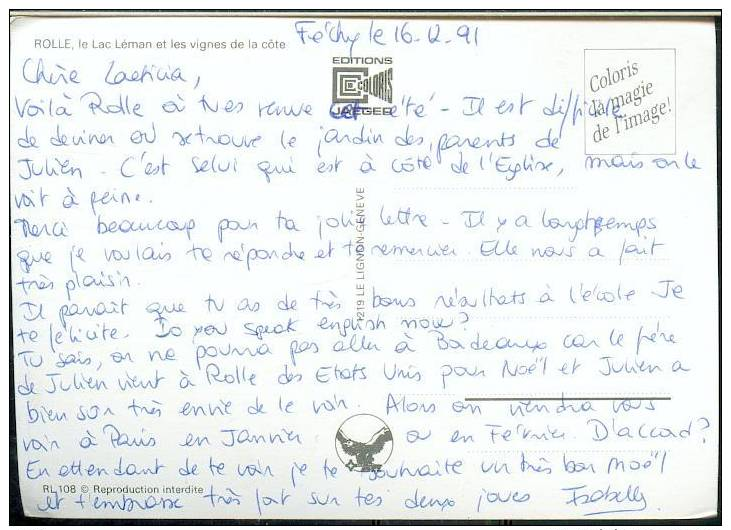 ROLLE, le Lac Léman et les vignes de la côte
Féchy le 16-12-91
EDITIONS
COLORIS
JAEGER
Coloris
la magie
de l'image!
Chère Laeticia,
Voilà Rolle où tu es venue cet été - Il est difficile
de deviner où se trouve le jardin des parents de
Julien. C'est selui qui est à côté de l'Eglise, mais on le
voit à peine.
Merci beaucoup pour ta jolie lettre - Il y a longtemps
que je voulais te répondre et te remercier. Elle nous a fait
très plaisir.
Il parait que tu as de très bons résultats à l'école Je
te félicite. Do you speak english now?
Tu sais, on ne pourra pas aller à Bordeaux car le père
de Julien vient à Rolle des Etats Unis pour Noël et Julien a
bien sûr très envie de le voir. Alors on viendra vous
voir à Paris en Janvier ou en Février. D'accord?
En attendant de te voir je te souhaite un très bon Noël
et t'embrasse très fort sur tes deux joues Isabelle
1219 LE LIGNON-GENEVE
RL 108 © Reproduction interdite